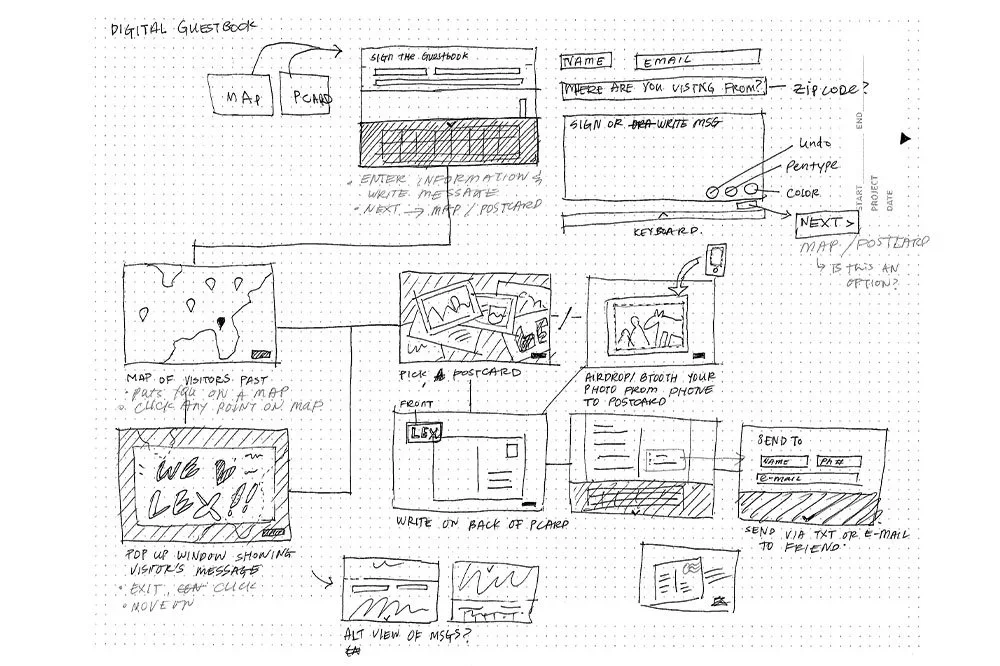 DIGITAL GUESTBOOK
MAP
PCARD
SIGN THE GUESTBOOK
NAME
EMAIL
WHERE ARE YOU VISTNG FROM?
ZIPCODE?
SIGN OR WRITE MSG
undo
pentype
COLOR
KEYBOARD.
NEXT >
MAP / POSTCARD
↳ IS THIS AN
OPTION?
START END
PROJECT
DATE
• ENTER INFORMATION &
WRITE MESSAGE
• NEXT → MAP / POSTCARD
MAP OF VISITORS PAST
• PUTS YOU ON A MAP
• CLICK ANY POINT ON MAP.
PICK A POSTCARD
AIRDROP/BTOOTH YOUR
PHOTO FROM PHONE
TO POSTCARD
WE
LEX!!
POP UP WINDOW SHOWING
VISITOR'S MESSAGE
• EXIT, CLICK
• MOVE ON
FRONT
LEX
WRITE ON BACK OF PCARD
SEND TO
NAME
PH#
E-MAIL
SEND VIA TXT OR E-MAIL
TO FRIEND.
ALT VIEW OF MSGS?